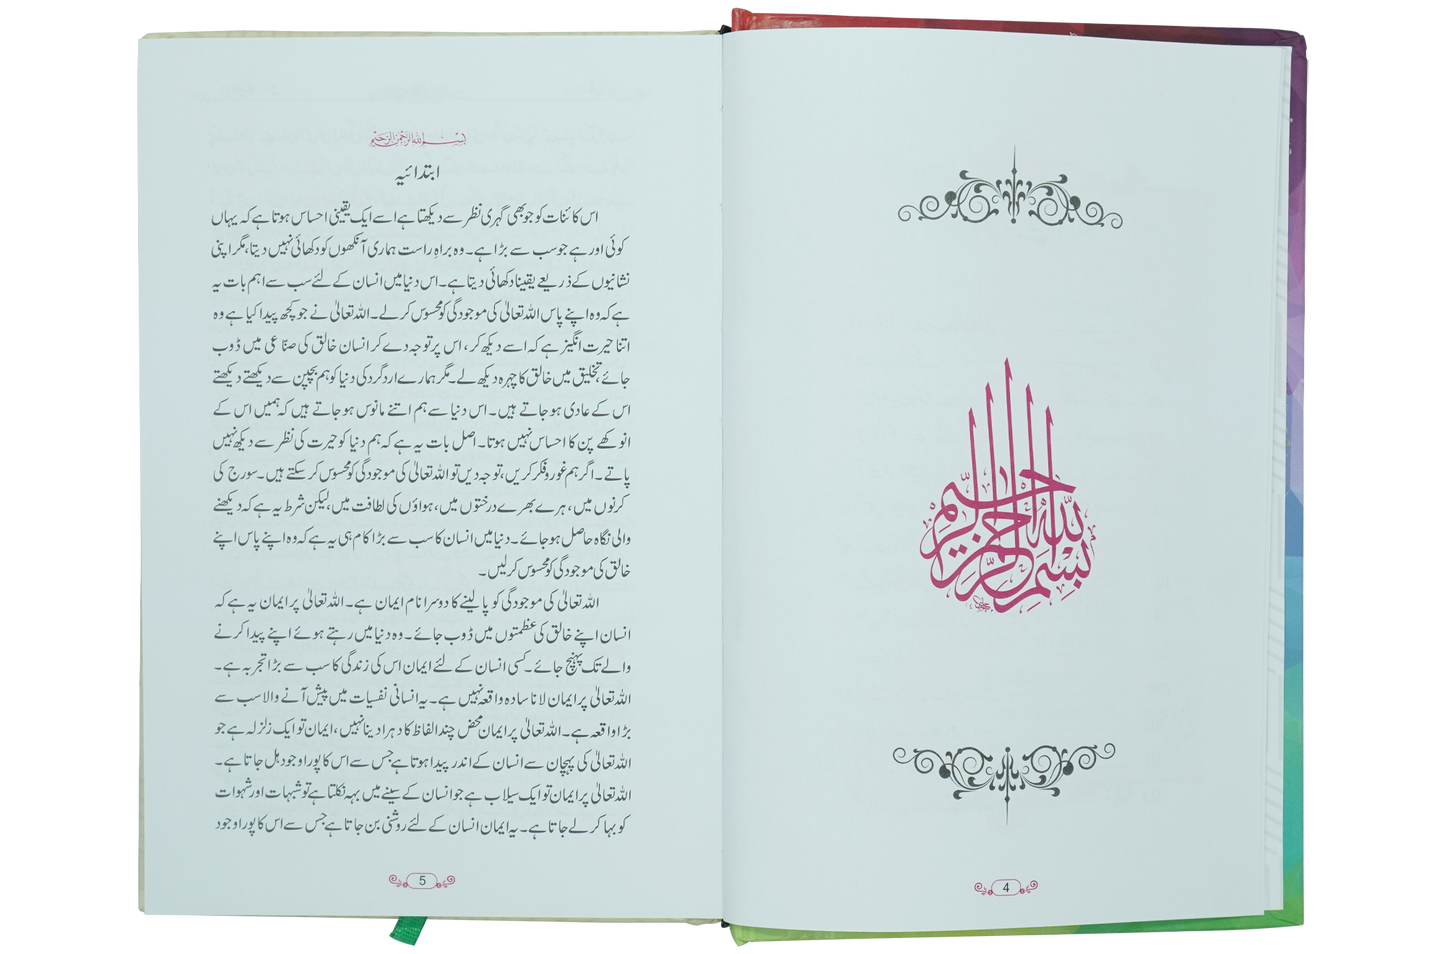 بسم الله الرحمن الرحيم
4
بسم اللہ الرحمٰن الرحیم
ابتدائیہ
اس کائنات کو جو بھی گہری نظر سے دیکھتا ہے اسے ایک یقینی احساس ہوتا ہے کہ یہاں
کوئی اور ہے جو سب سے بڑا ہے۔ وہ براہِ راست ہماری آنکھوں کو دکھائی نہیں دیتا، مگر اپنی
نشانیوں کے ذریعے یقینا دکھائی دیتا ہے۔ اس دنیا میں انسان کے لئے سب سے اہم بات یہ
ہے کہ وہ اپنے پاس اللہ تعالیٰ کی موجودگی کو محسوس کر لے۔ اللہ تعالیٰ نے جو کچھ پیدا کیا ہے وہ
اتنا حیرت انگیز ہے کہ اسے دیکھ کر، اس پر توجہ دے کر انسان خالق کی صنّاعی میں ڈوب
جائے، تخلیق میں خالق کا چہرہ دیکھ لے۔ مگر ہمارے اردگرد کی دنیا کو ہم بچپن سے دیکھتے دیکھتے
اس کے عادی ہو جاتے ہیں۔ اس دنیا سے ہم اتنے مانوس ہو جاتے ہیں کہ ہمیں اس کے
انوکھے پن کا احساس نہیں ہوتا۔ اصل بات یہ ہے کہ ہم دنیا کو حیرت کی نظر سے دیکھ نہیں
پاتے۔ اگر ہم غور و فکر کریں، توجہ دیں تو اللہ تعالیٰ کی موجودگی کو محسوس کر سکتے ہیں۔ سورج کی
کرنوں میں، ہرے بھرے درختوں میں، ہواؤں کی لطافت میں، لیکن شرط یہ ہے کہ دیکھنے
والی نگاہ حاصل ہو جائے۔ دنیا میں انسان کا سب سے بڑا کام ہی یہ ہے کہ وہ اپنے پاس اپنے
خالق کی موجودگی کو محسوس کر لیں۔
اللہ تعالیٰ کی موجودگی کو پا لینے کا دوسرا نام ایمان ہے۔ اللہ تعالیٰ پر ایمان یہ ہے کہ
انسان اپنے خالق کی عظمتوں میں ڈوب جائے۔ وہ دنیا میں رہتے ہوئے اپنے پیدا کرنے
والے تک پہنچ جائے۔ کسی انسان کے لئے ایمان اس کی زندگی کا سب سے بڑا تجربہ ہے۔
اللہ تعالیٰ پر ایمان لانا سادہ واقعہ نہیں ہے۔ یہ انسانی نفسیات میں پیش آنے والا سب سے
بڑا واقعہ ہے۔ اللہ تعالیٰ پر ایمان محض چند الفاظ کا دہرا دینا نہیں، ایمان تو ایک زلزلہ ہے جو
اللہ تعالیٰ کی پہچان سے انسان کے اندر پیدا ہوتا ہے جس سے اس کا پورا وجود ہل جاتا ہے۔
اللہ تعالیٰ پر ایمان تو ایک سیلاب ہے جو انسان کے سینے میں بہہ نکلتا ہے تو شبہات اور شہوات
کو بہا کر لے جاتا ہے۔ یہ ایمان انسان کے لئے روشنی بن جاتا ہے جس سے اس کا پورا وجود
5